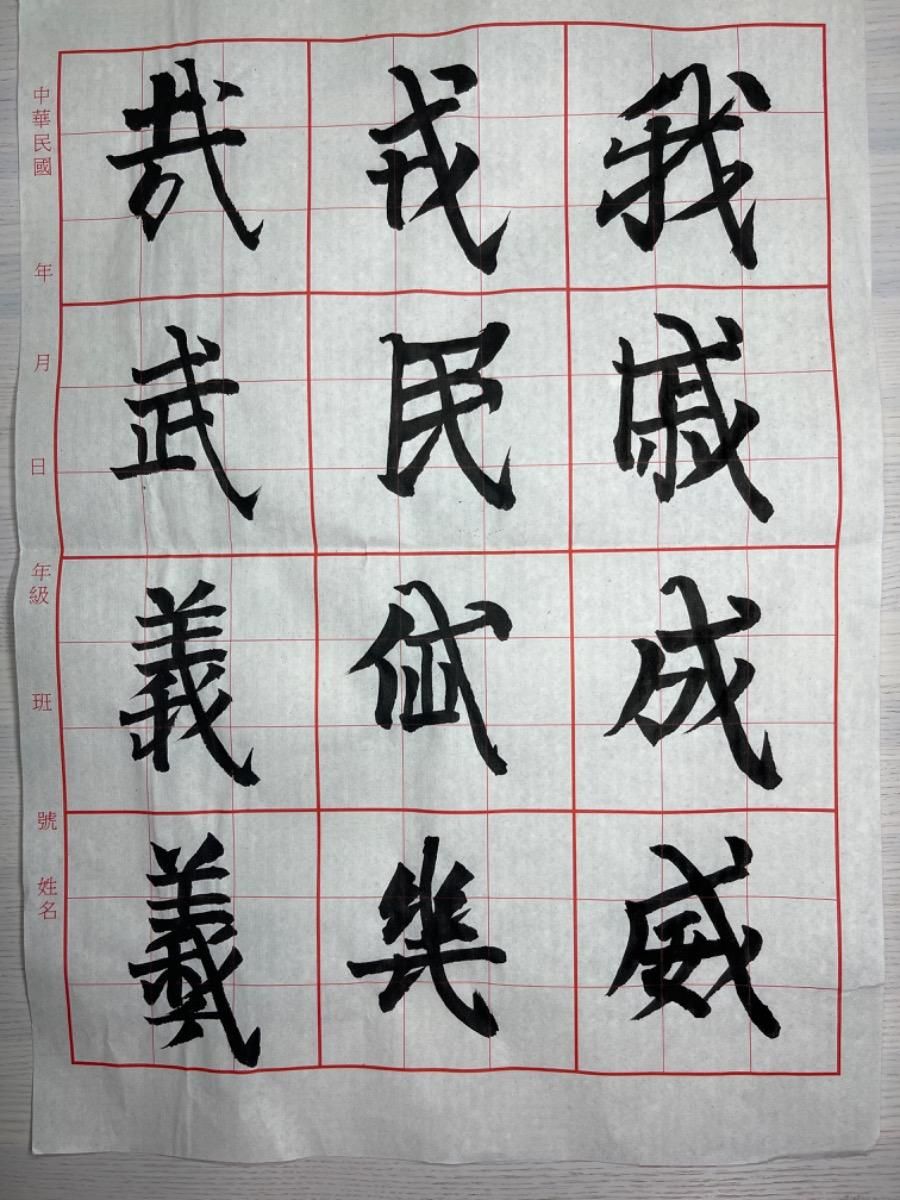 我戚成威
戎民幾
哉武義羲
中華民國 年 月 日 年級 班 號 姓名